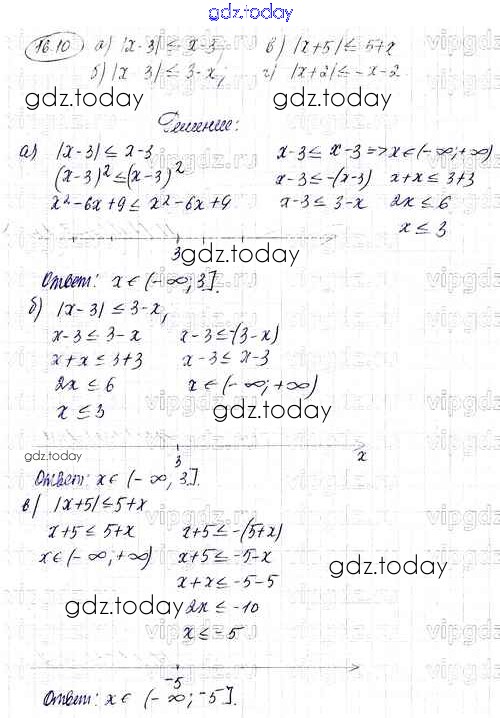 gdz.today
16.10 а) |x-3| ≤ x-3; в) |x+5| ≤ 5+x
б) |x-3| ≤ 3-x; г) |x+2| ≤ -x-2
gdz.today gdz.today
Решение:
а) |x-3| ≤ x-3 x-3 ≤ x-3 => x∈(-∞;+∞)
(x-3)² ≤ (x-3)² x-3 ≤ -(x-3) x+x ≤ 3+3
x²-6x+9 ≤ x²-6x+9 x-3 ≤ 3-x 2x ≤ 6
x ≤ 3
3 gdz.today
Ответ: x∈(-∞;3].
б) |x-3| ≤ 3-x,
x-3 ≤ 3-x x-3 ≤ -(3-x)
x+x ≤ 3+3 x-3 ≤ x-3
2x ≤ 6 x∈(-∞;+∞)
x ≤ 3 gdz.today
gdz.today 3 x
Ответ: x∈(-∞, 3].
в) |x+5| ≤ 5+x
x+5 ≤ 5+x x+5 ≤ -(5+x)
x∈(-∞,+∞) x+5 ≤ -5-x
gdz.today
x+x ≤ -5-5
gdz.today 2x ≤ -10
x ≤ -5
-5
Ответ: x∈(-∞;-5].